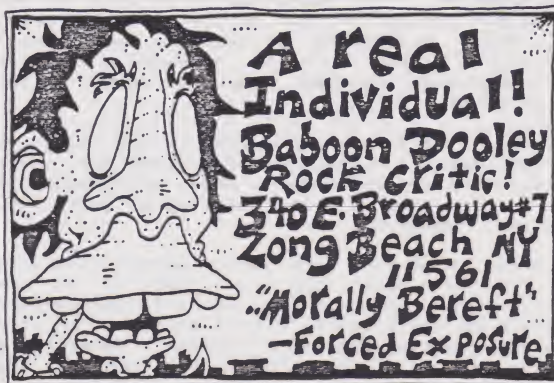 A real
Individual!
Baboon Dooley
Rock Critic!
340 E. Broadway #7
Long Beach NY
11561
"Morally Bereft"
-Forced Exposure